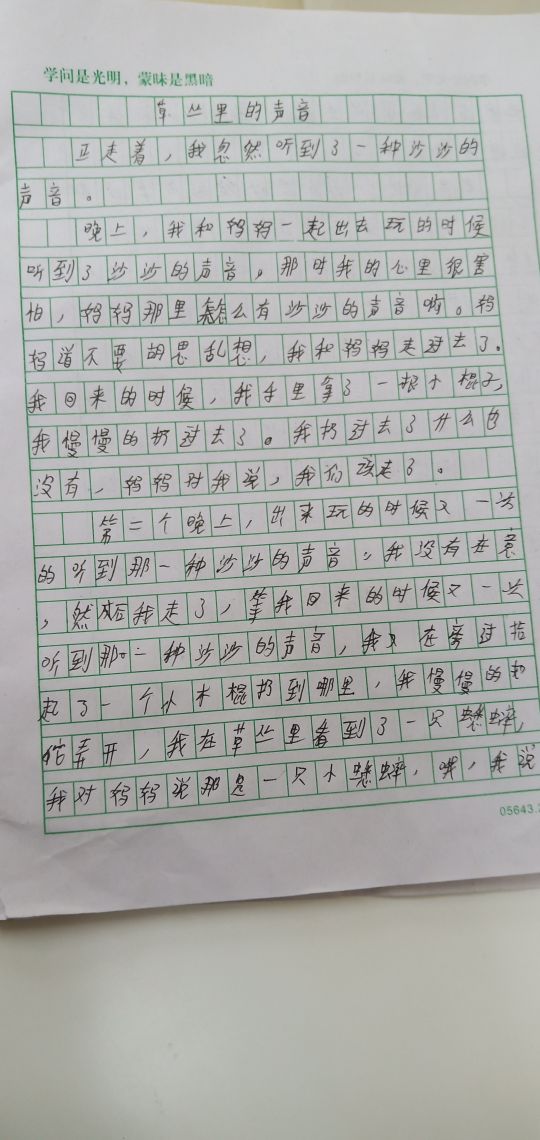 学问是光明，蒙昧是黑暗
草丛里的声音
正走着，我忽然听到了一种沙沙的
声音。
晚上，我和妈妈一起出去玩的时候
听到了沙沙的声音，那时我的心里很害
怕，妈妈那里怎么有沙沙的声音呦。妈
妈道不要胡思乱想，我和妈妈走过去了。
我回来的时候，我手里拿了一根木棍子，
我慢慢的扔过去了。我扔过去了什么也
没有，妈妈对我说，我们该走了。
第二个晚上，出来玩的时候又一次
的听到那一种沙沙的声音，我没有在意
，然后我走了，等我回来的时候又一次
听到那一种沙沙的声音，我又在旁边拾
起了一个小木棍扔到哪里，我慢慢的把
它弄开，我在草丛里看到了一只蟋蟀，
我对妈妈说那是一只小蟋蟀，哦，我说
05643.